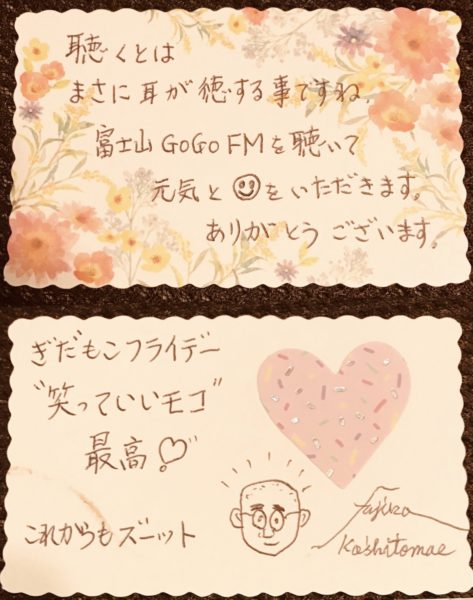 聴くとは
まさに耳が徳する事ですね。
富士山GOGOFMを聴いて
元気と☺をいただきます。
ありがとうございます。
ぎだもこフライデー
"笑っていいモコ"
最高!♡
これからもズーット
Koshitomae